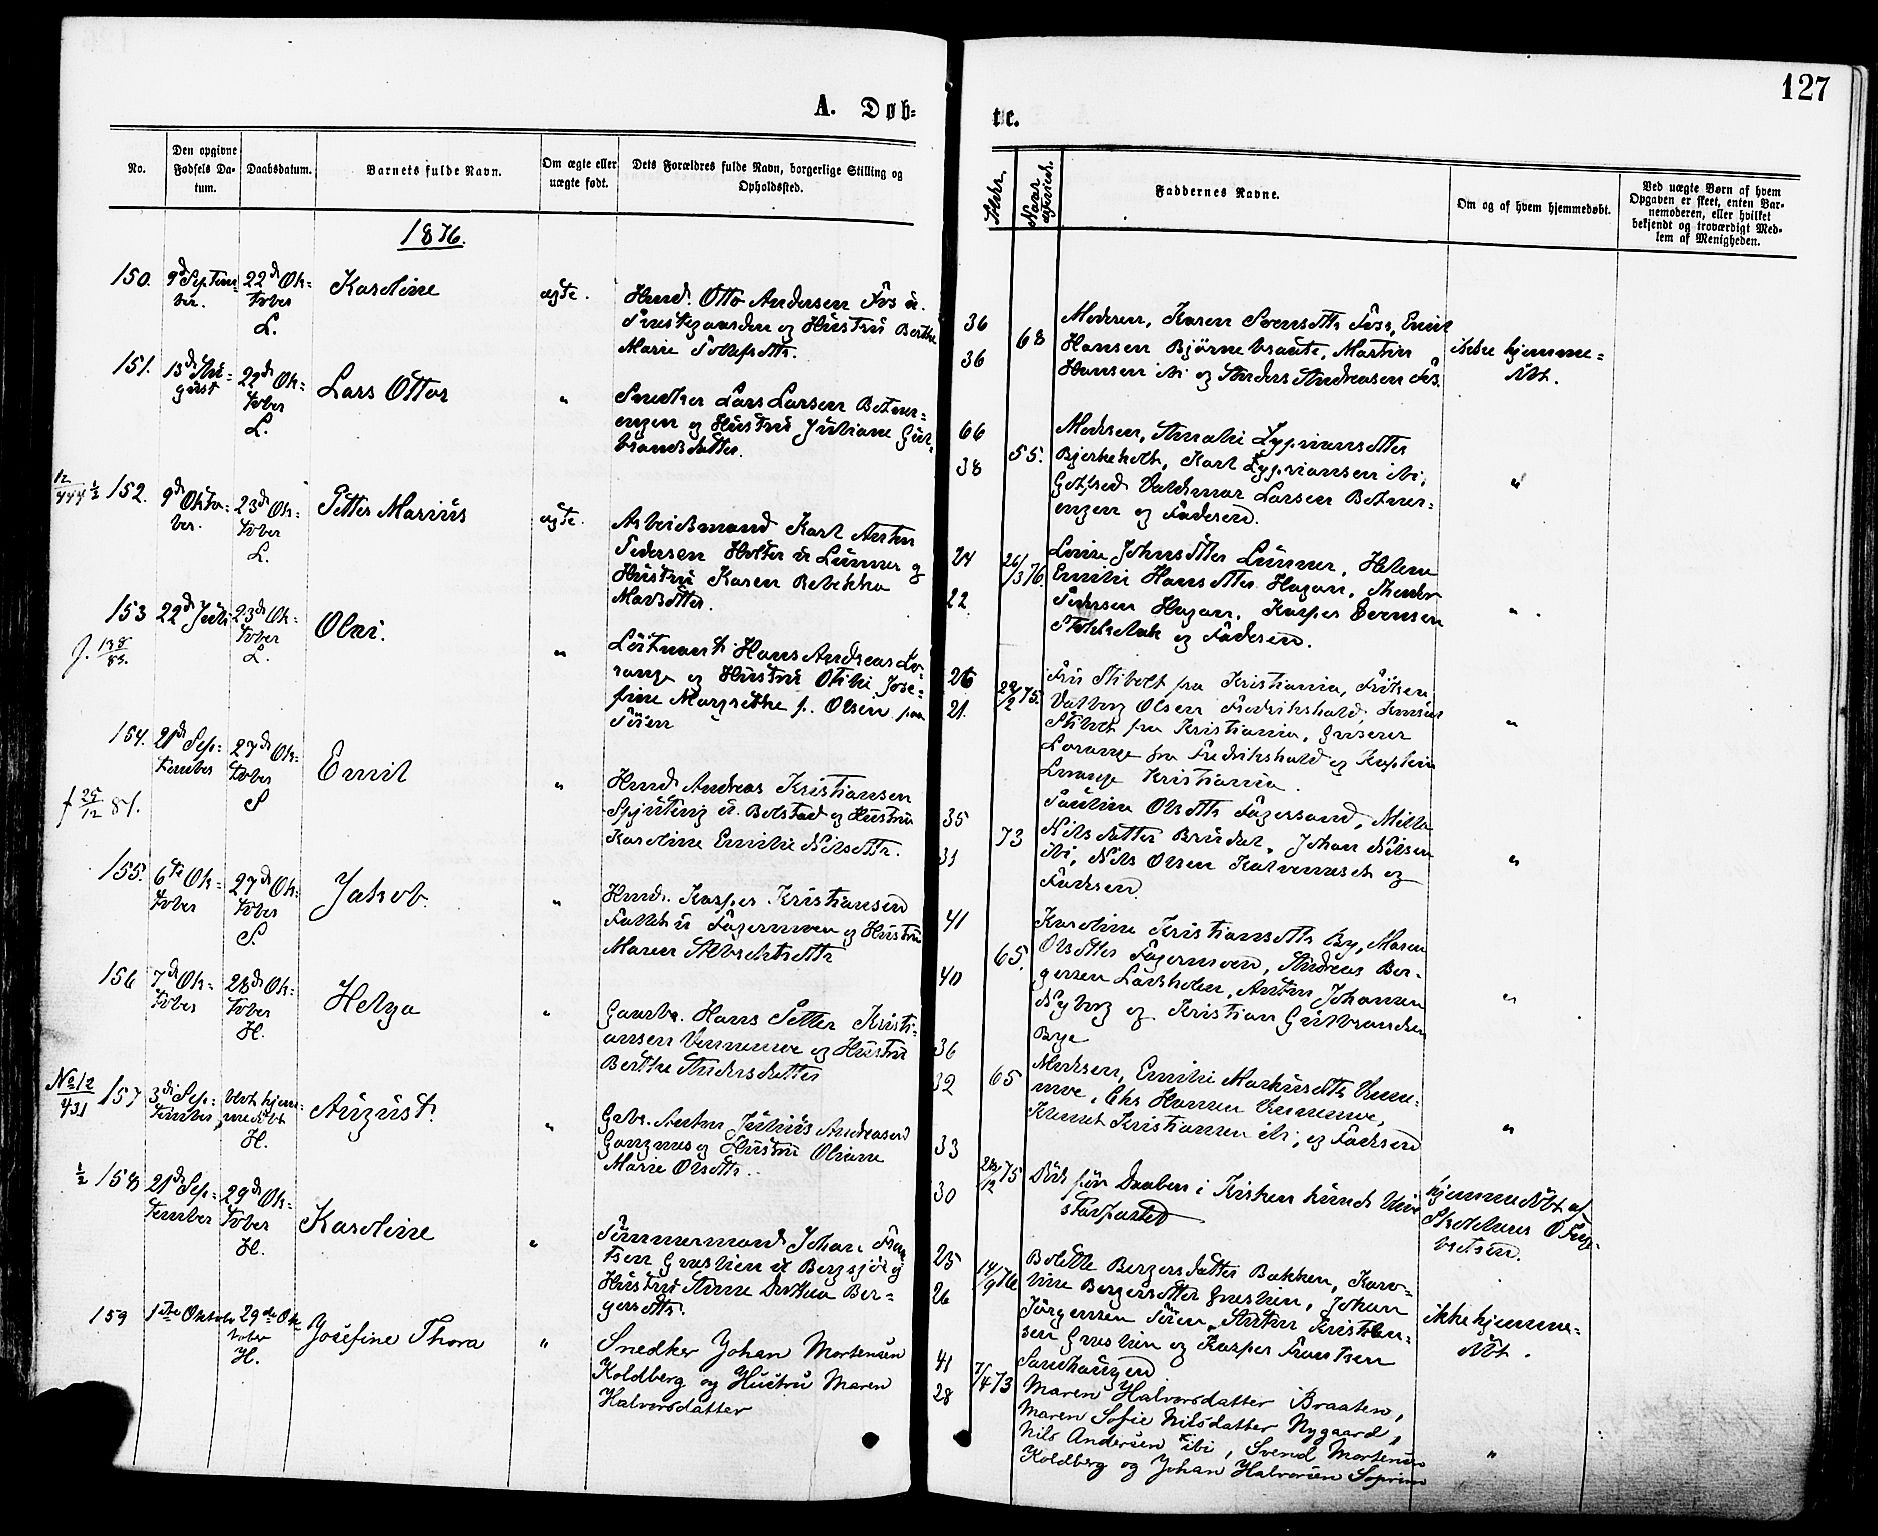 127
A. Døb-
te.
No.
Den opgivne Fødsels Da-
tum.
Daabsdatum.
Barnets fulde Navn.
Om ægte eller
uægte født.
Dets Forældres fulde Navn, borgerlige Stilling og
Opholdssted.
Alder.
Naar
ægteviet.
Faddernes Navne.
Om og af hvem hjemmedøbt.
Ved uægte Børn af hvem
Opgaven er skeet, enten Bar-
nemoderen, eller hvilket
bekjendt og troværdigt Med-
lem af Menigheden.
1876.
150.
9de Septem-
ber.
22de Ok-
tober
L.
Karoline
ægte.
Hmd. Otto Andersen Fos u.
og Hustru Berthe
Marie
36
36
68
Moderen, Karen Svensdttr Foss, Emil
Hansen Bjørnebraate, Martin
Hansen ibi og Anders Andreasen Fos.
ikke hjemme-
døbt.
151.
13de Au-
gust
22de Ok-
tober
L.
Lars Ottar
"
Snedker Lars Larsen Betner-
engen og Hustru Juliane Gul-
brandsdatter.
66
38
55.
Moderen, Amalie Zypriansdtter
Bjerkeholt, Karl Zypriansen ibi,
Gotfred Valdemar Larsen Betner-
engen og Faderen.
"
12/444 1/2
152.
9de Okto-
ber.
23de Ok-
tober
L.
Petter Marius
ægte.
Arbeidsmand Karl Anton
Pedersen Holter u Lunner og
Hustru Karen Rebekka
24
22
26/3 76.
Lovise Johnsdtter Lunner, Helene
Emilie Hansdtter Hagan, Theodor
Pedersen Hagan, Kasper Evensen
og Faderen.
"
153
22de Juli
23de Ok-
tober
L.
Olai.
J. 138/85.
"
Løitnant Hans Andreas Lo-
range og Hustru Otilie Jose-
fine Margrethe f. Olsen paa
26
21
29/2 75.
Fru Stibolt fra Kristiania, Frøken
Valborg Olsen Fredrikshald,
Stibolt fra Kristiania, Grosserer
Lorange fra Fredrikshald og Kaptein
Lorange Kristiania.
"
154.
21de Sep-
tember
27de Ok-
tober
S
Emil
f 25/12 81.
"
Hmd. Andreas Kristiansen
u. Bolstad og Hustru
Karoline Emilie Nilsdttr.
35
31
73
Paulina Olsdttr Fagersand, Milla
Nilsdatter Brudal, Johan Nilsen
ibi, Nils Olsen Kalvenæset og
Faderen.
"
155.
6te Ok-
tober
27de Ok-
tober
S.
Jakob.
"
Hmd. Kasper Kristiansen
Faldet u Fagermoen og Hustru
Maren Albrektsdttr
41
40
65.
Karoline Kristiansdttr By, Maren
Olsdtter Fagermoen, Andreas Ber-
gersen Laksholen, Anton Johansen
Nyborg og Kristian Gulbrandsen
Bye
"
156
7de Ok-
tober
28de Ok-
tober
H.
Helga
"
Gaardbr. Hans Petter Kristi-
ansen Vennemoe og Hustru
Berthe Andersdatter
36
32
65
Moderen, Emilie Markusdttr Venne-
moe, Chr Hansen Vennemoe,
Klemet Kristiansen ibi, og Faderen
"
No 12/431
157
3die Sep-
tember,
blot hjem-
medøbt
H.
August.
"
Gbr. Anton Julius Andreasen
Gangnæs og Hustru Oliane
Marie Olsdttr.
33
30
28/12 75
Døde før Daaben i Kirken kunde blive
stadfæstet
hjemmedøbt af
Skolelærer O Eng-
bretsen.
1/2
158
21de Sep-
tember
29de Ok-
tober
H.
Karoline
"
Tømmermand Johan Fran-
tsen Gresleen u Bergsjø og
Hustru Anne Dorthea Ber-
gersdttr.
25
26
14/9 76
Bolette Bergersdatter Bakken, Karo-
line Bergersdtter Gresleen, Johan
Jørgensen Moen, Anton Kristen-
sen Gresleen og Kasper Frantsen
Sandhaugen
ikke hjemme-
døbt.
159
1ste Oktober
29de Ok-
tober
H.
Josefine Thora
"
Snedker Johan Mortensen
Koldberg og Hustru Maren
Halvorsdatter
41
28
7/4 73
Maren Halvorsdatter Braaten,
Maren Sofie Nilsdatter Nygaard,
Nils Andersen ibi, Svend Mortensen
Koldberg og Johan Halvorsen
"